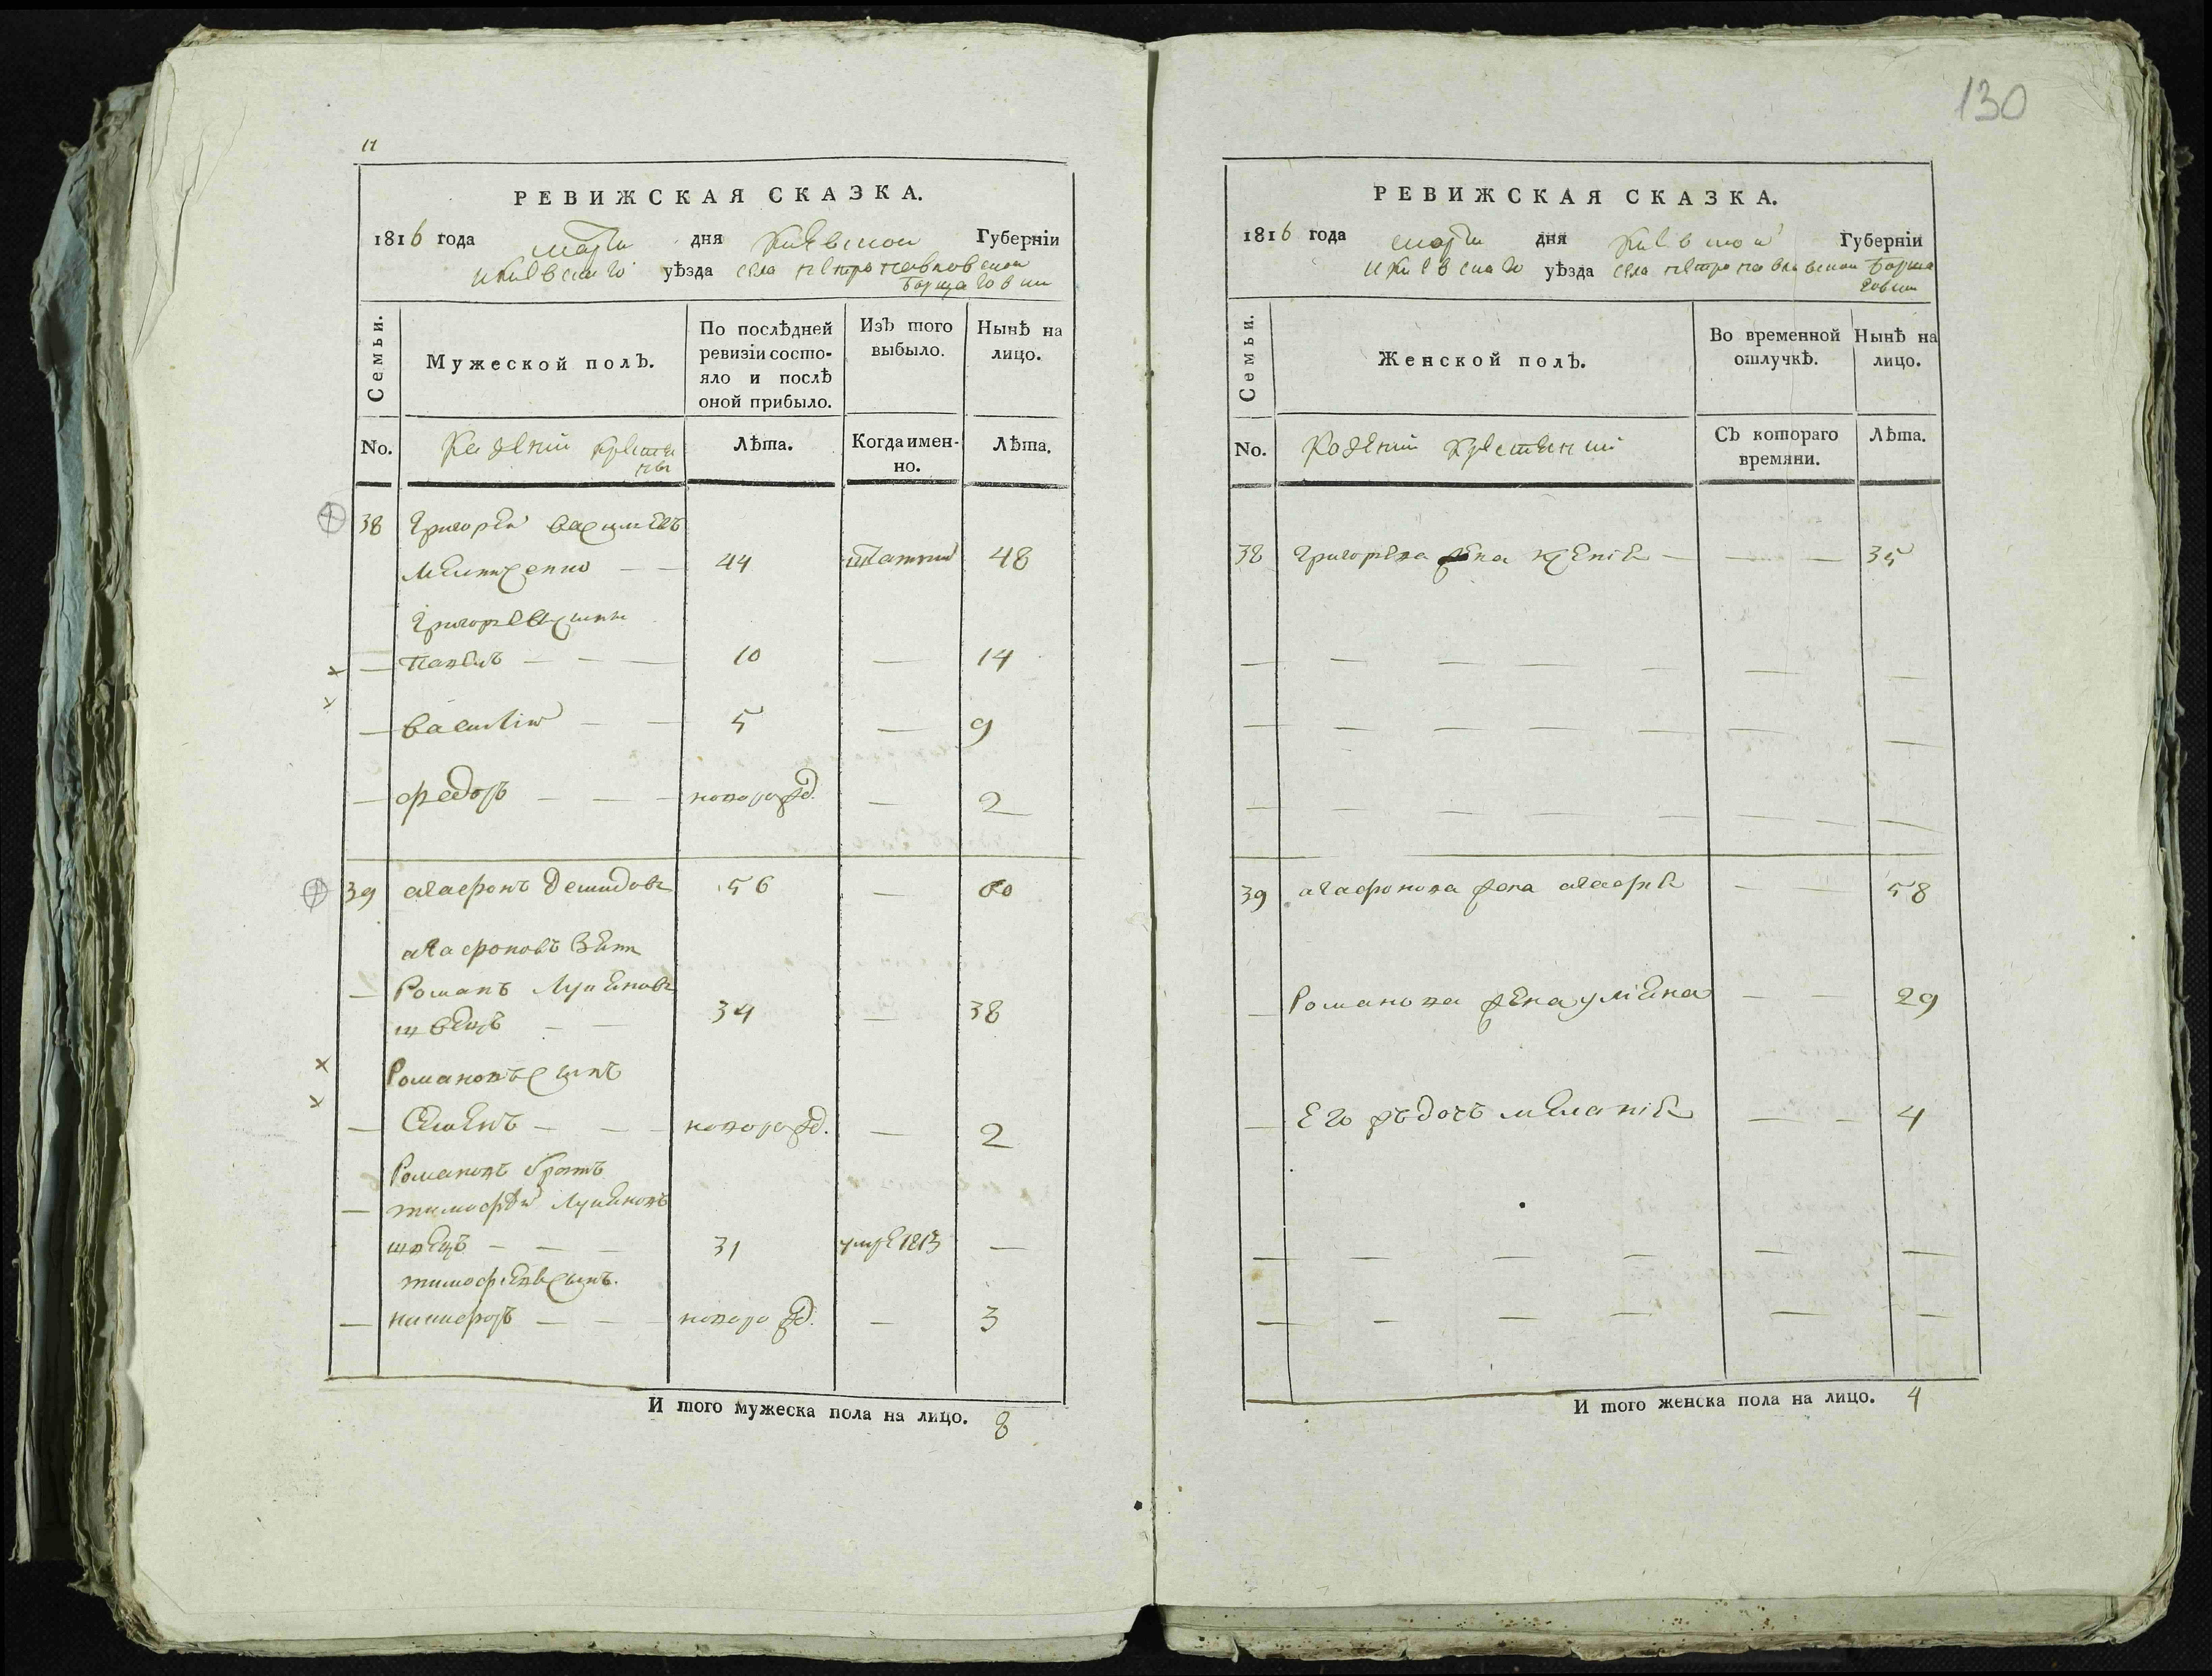 11
РЕВИЖСКАЯ СКАЗКА.
1816 года марта дня Киевской Губерніи
и Киевскаго уѣзда села Петропавловской
Борщаговки
Семьи.
Мужеской полЪ.
По послѣдней ревизіи состо-
яло и послѣ
оной прибыло.
ИзЪ того
выбыло.
Нынѣ на
лицо.
No.
Казеній крестя
ны
Лѣта.
Когда имен-
но.
Лѣта.
38 Григорей василевъ
44 48
Григорьевы сыны
— Павелъ — — — 10 — 14
— василій — — 5 — 9
— федоръ — — — новорожд. — 2
39 агафонъ Демидовъ 56 — 60
агафоновъ зять
— Романъ Лукяновъ
швецъ — — 34 — 38
Романовъ сынъ
— Семенъ — — — новорожд. — 2
Романовъ братъ
— тимофей Лукяновъ
швецъ — — — 31 умре 1813 —
тимофеевъ сынъ.
— никифоръ — — — новорожд. — 3
И того мужеска пола на лицо. 8
130
РЕВИЖСКАЯ СКАЗКА.
1816 года марта дня Киевской Губерніи
и Киевскаго уѣзда села петропавловской Борща
говки
Семьи.
Женской полЪ.
Во временной
отлучкѣ.
Нынѣ на
лицо.
No.
Козеній крестянки
СЪ котораго
времяни.
Лѣта.
38 Григорева жена ксения — — — 35
39 агафонова жена агафия — — 58
— Романова жена улияна — — 29
— Его ж дочъ мелания — — 4
И того женска пола на лицо. 4